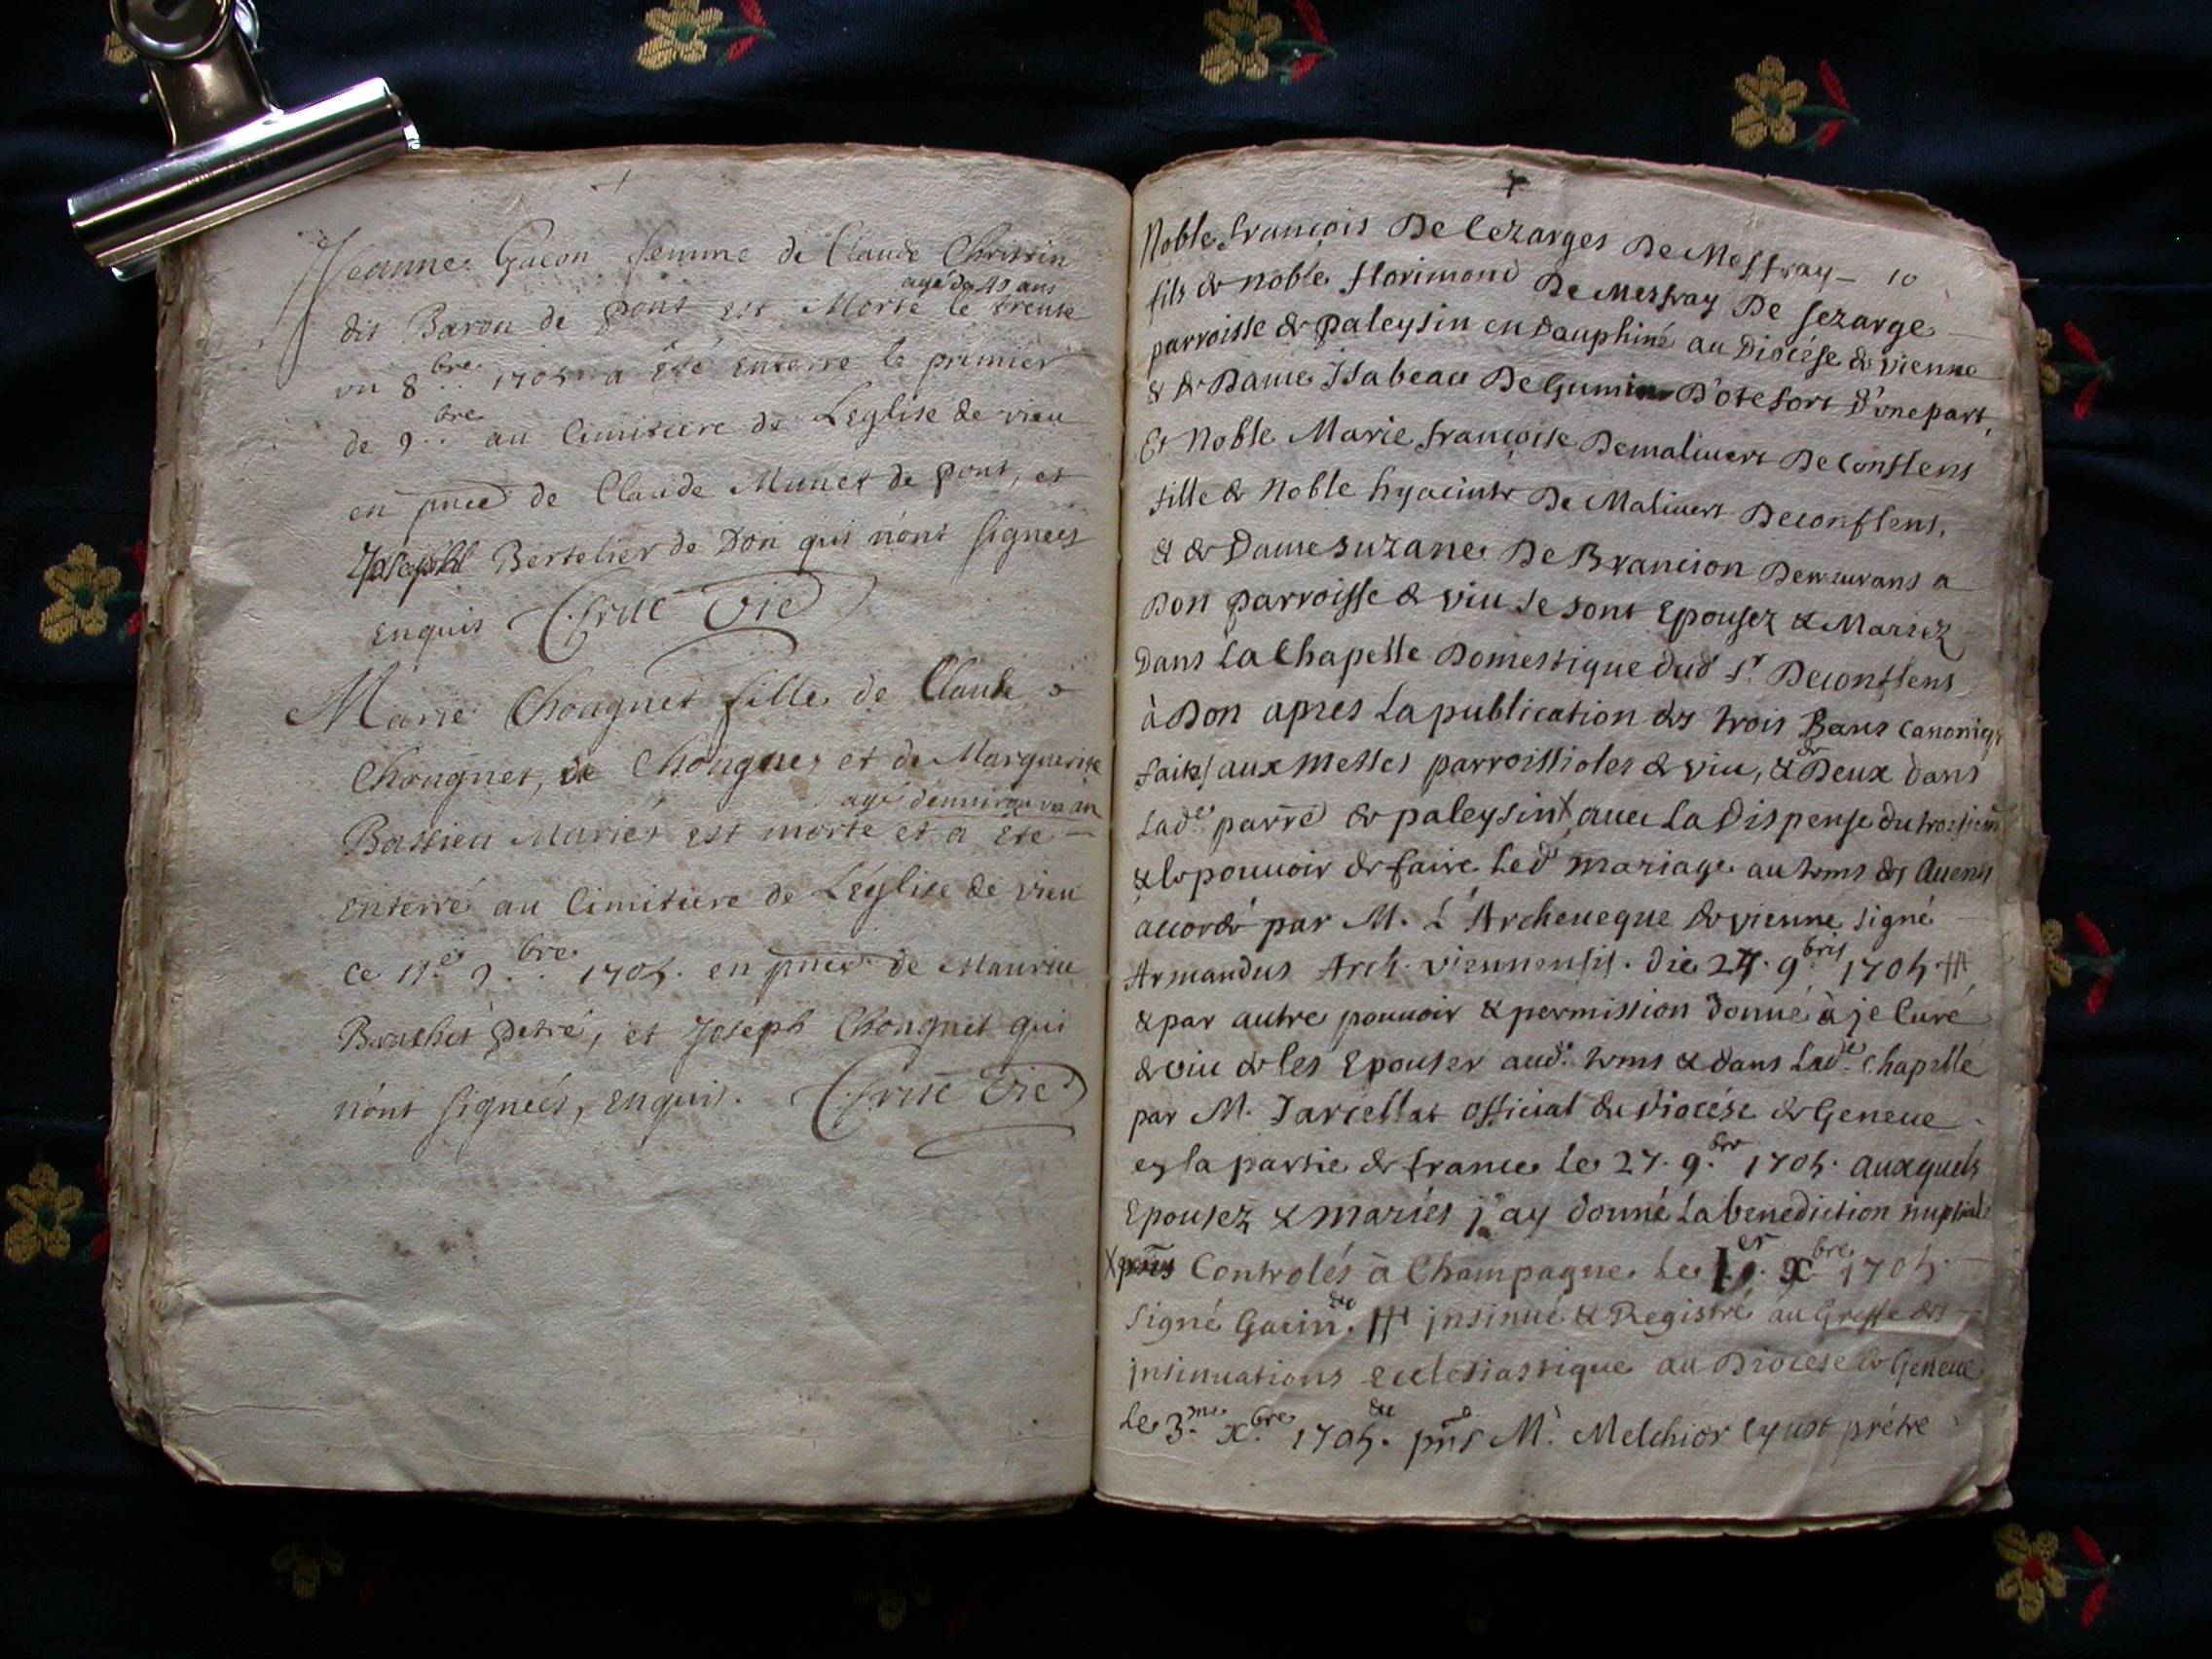 Jeanne Gacon femme de Claude Christin
agé de 40 ans
dit Baron de pont est Morte le trente
un 8bre 1705. a été enterré le premier
de 9bre au Cimitiere de Leglise de vieu
en pnce de Claude Munet de pont, et
Joseph Bertelier de Don qui nont signées
enquis Cyvust Vic
Marie Chougnet fille de Claude
Chougnet, de Chougnes et de Marguerite
agé denviron un an
Bassieu Mariés est morte et a été
enterré au Cimitiere de Léglise de vieu
ce 11.e 9bre 1705. en pnce de Maurice
Brachet Petré, et Joseph Chougnet qui
nónt signeés, enquis. Vic
Noble françois De Cezarges De Meffray 10
fils de noble florimond De Meffray De sezarge
parroisse de paleysin en Dauphiné au Diocése de vienne
& de Dame Isabeau De Gumin D'otefort D'une part,
Et Noble Marie françoise Demalivert De Conflens
fille de Noble hyacinte De Malivert Deconflens,
& de Dame suzane De Brancion Demeurans a
Don parroisse de viu se sont Epousez & Mariez
Dans La Chapelle Domestique dud sr. Deconflens
à Don apres La publication des trois Bans Canoniqs
faits aux Messes parroissioles de viu, & de Deux dans
Lade. parre de paleysin X avec La Dispense du troisiem
& le pouvoir de faire Led mariage au tems des Avens
accordé par M. L'Archeveque de vienne signé
Armandus Arch. viennensis. die 24. 9bris 1705. #
& par autre pouvoir & permission donné à je Curé
de viu de les Epouser aud. tems & dans Lade. Chapelle
par M. Jarcellat official du Diocése de Geneve
en la partie de france Le 27. 9bre 1705. auxquels
Epousez & mariés j'ay donné La benediction nuptiale
X Controlés à Champagne Le 1er. xbre 1705.
signé Garin. # insinué & Registré au Greffe des
insinuations ecclesiastique au Diocese de Geneve
Le 3me. xbre 1705. pns Mr. Melchior Cyvot prétre